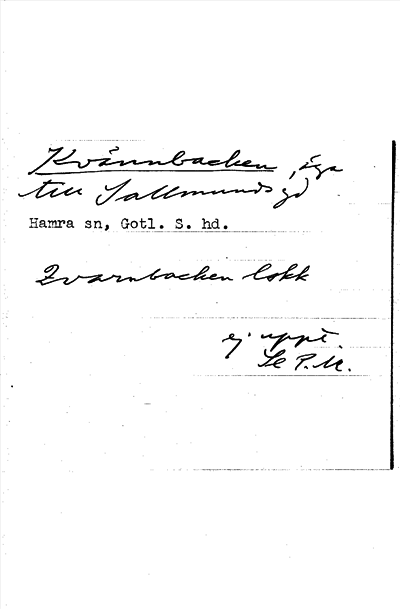 Kvännbacken, äga
till Sallmunds gd
Hamra sn, Gotl. S. hd.
Qvarnbacken lokk
ej uppt.
Se P.M.